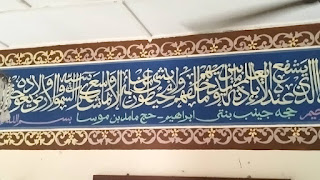 يشفع عنده إلا بإذنه يعلم ما بين أيديهم وما خلفهم ولا يحيطون بشيء من علمه إلا بما شاء وسع كرسيه السموات والأرض ولا
حجه جينب بنتى ابراهيم - حج مامد بن موسا